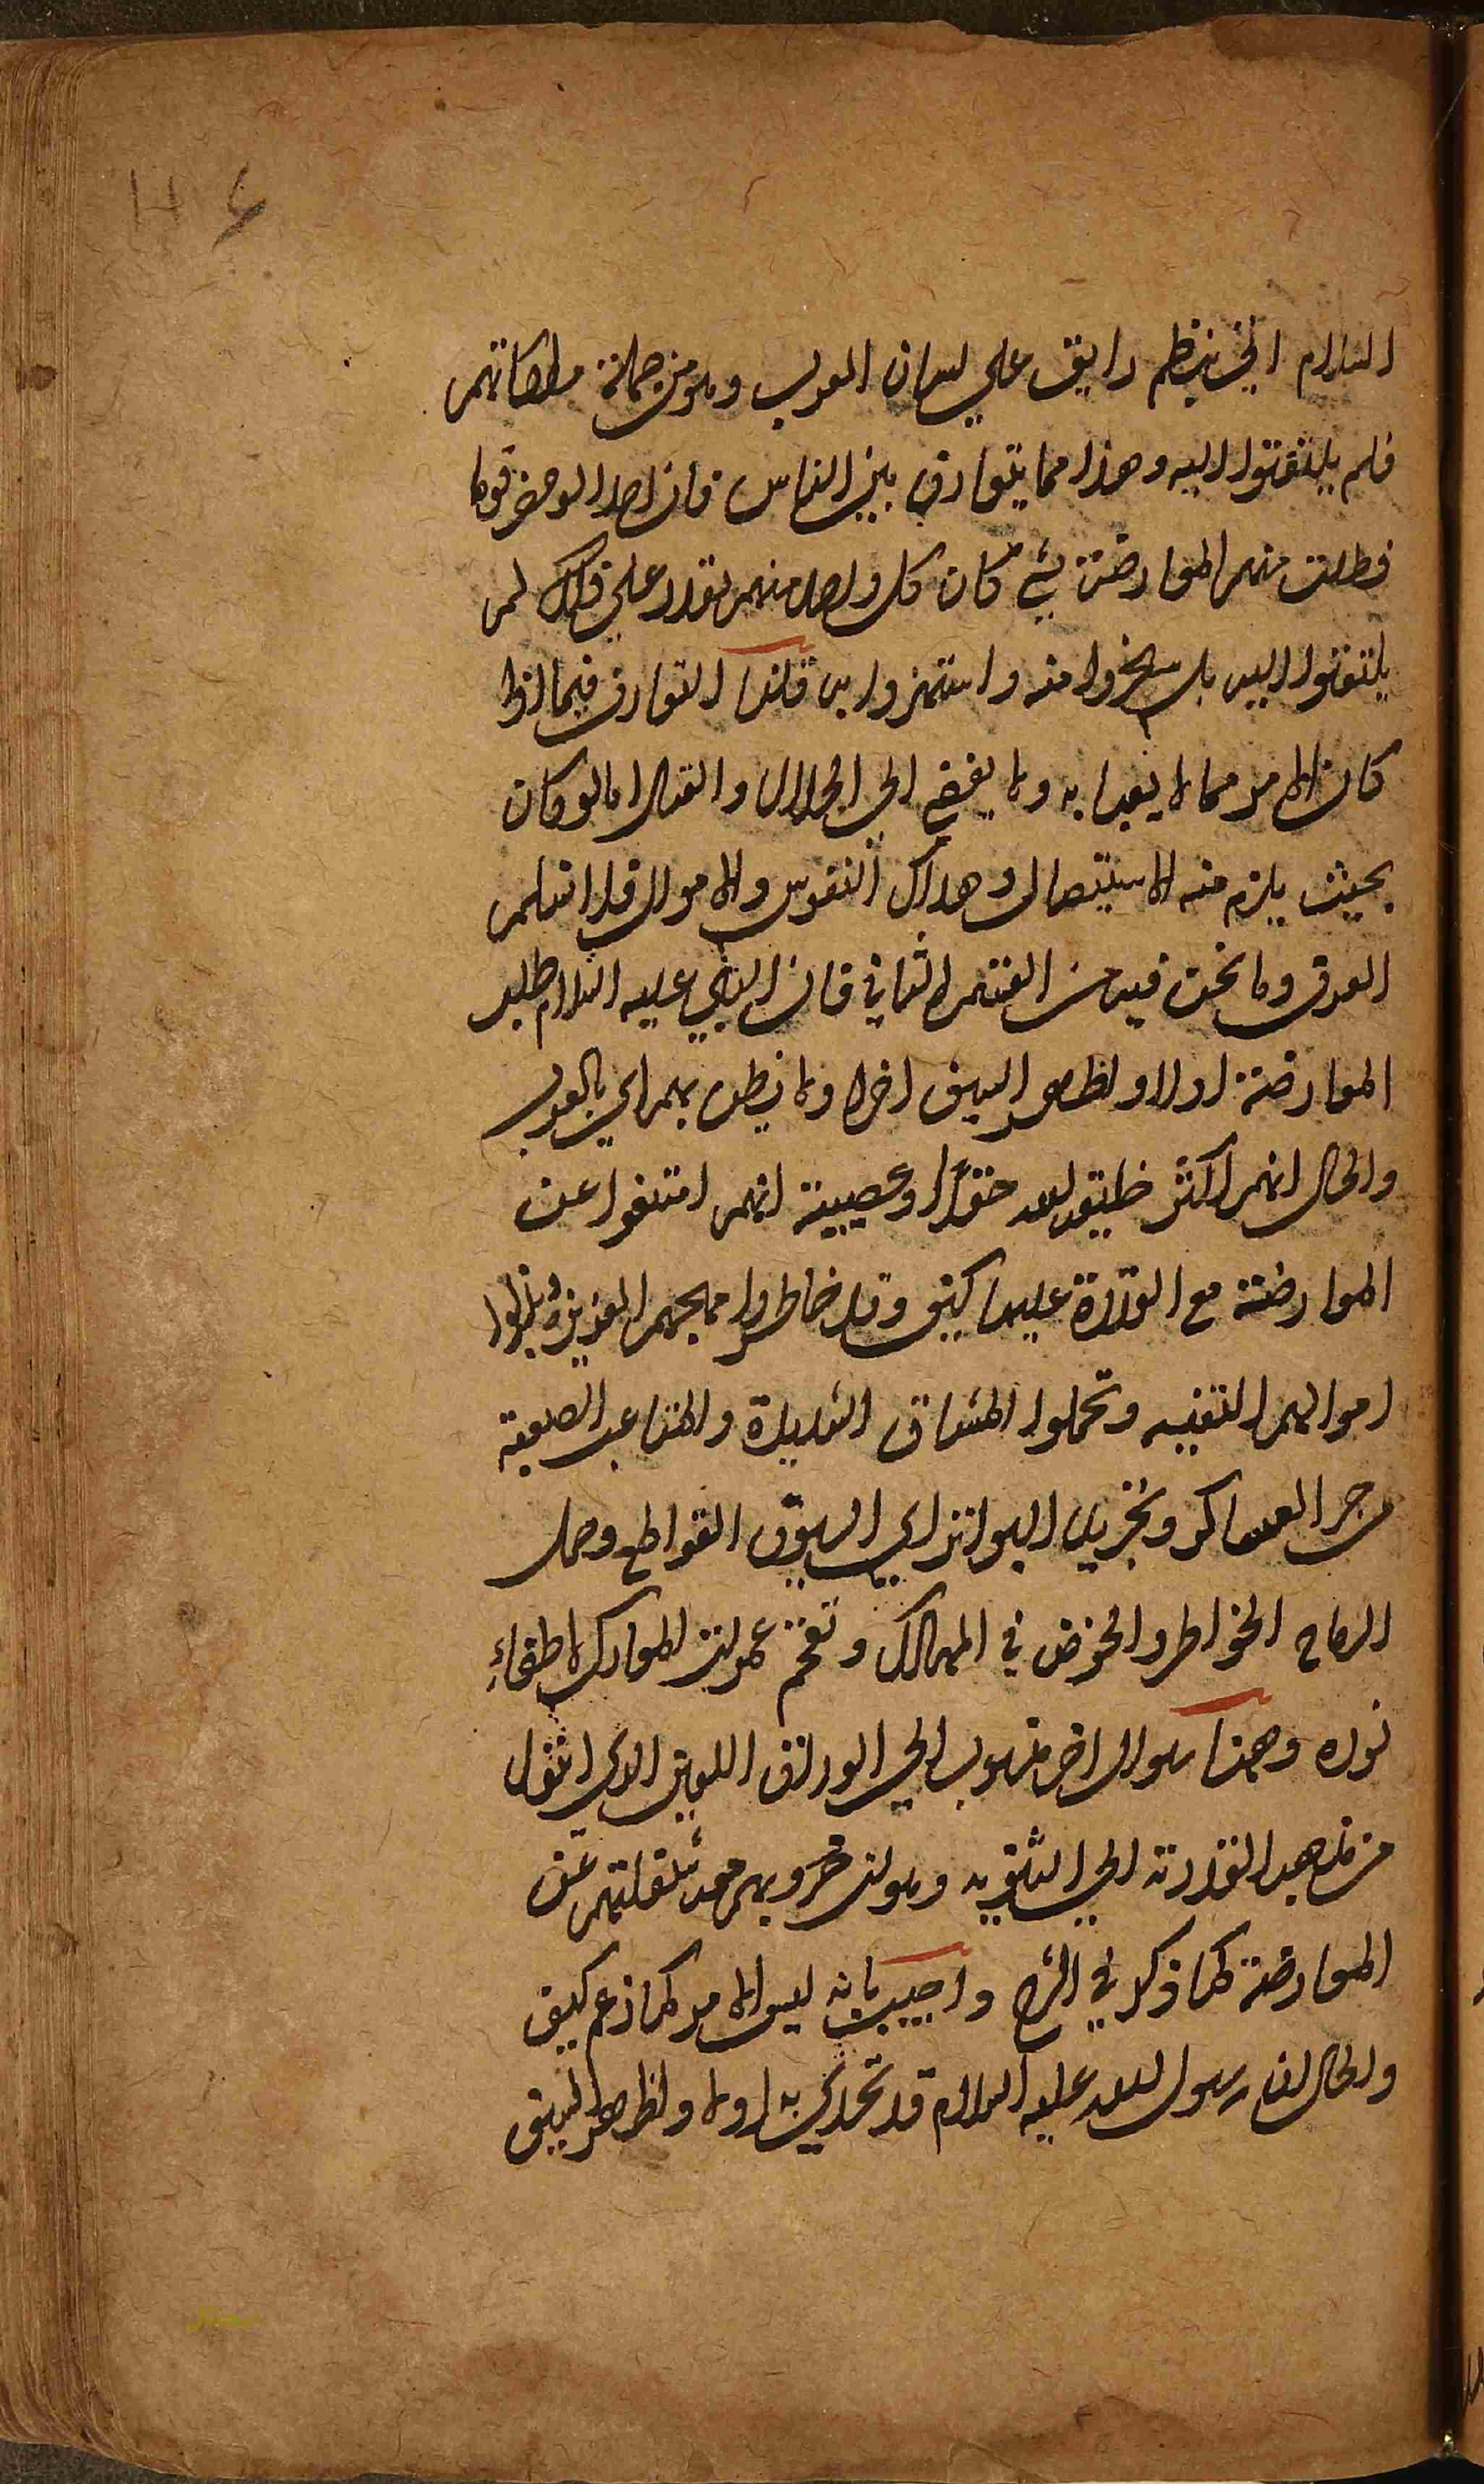 السلام اتي بنظم رايق علي لسان العرب وهو من جملة ملكاتهم
فلم يلتفتوا اليه وهذا مما يتعارف بين الناس فان احدا لو حضر قوما
فطلب منهم المعارضة بشي كان كل واحد منهم يقدر علي ذلك لم
يلتفتوا اليه بل سخروا منه واستهزوا به قلنا التعارف فيما اذا
كان الامر مما لا يعبا به ولا يفضي الي الجدال والقتال اما لو كان
بحيث يلزم منه الاستيصال وهلاك النفوس والاموال فلا نسلم
العرف وما نحن فيه من القسم الثاني فان النبي عليه السلام طلب
المعارضة اولا واظهر السيف اخرا وما نيطن بهم اي بالعرب
والحال انهم اكثر خليقة الله حقدا وعصبية انهم امتنعوا عن
المعارضة مع القدرة عليها كيف وقد خاطروا بمهجهم العزيزة وبذلوا
اموالهم النفيسه وتحملوا المشاق الشديدة والمتاعب الصعبة
من جر العساكر وتجريد البواتر اي السيوف القواطع وحمل
الرماح الخواطر والخوض في المهالك وتقحم غمرات المعارك لاطفاء
نوره وههنا سوال اخر منسوب الي الوراق اللعين الذي انتقل
من مذهب القدرية الي الثنويه وهو ان حروبهم معه شغلتهم عن
المعارضة كما ذكر في الشرح واجيب بانه ليس الامر كما زعم كيف
والحال ان رسول الله عليه السلام قد تحدي به اولا واظهر السيف